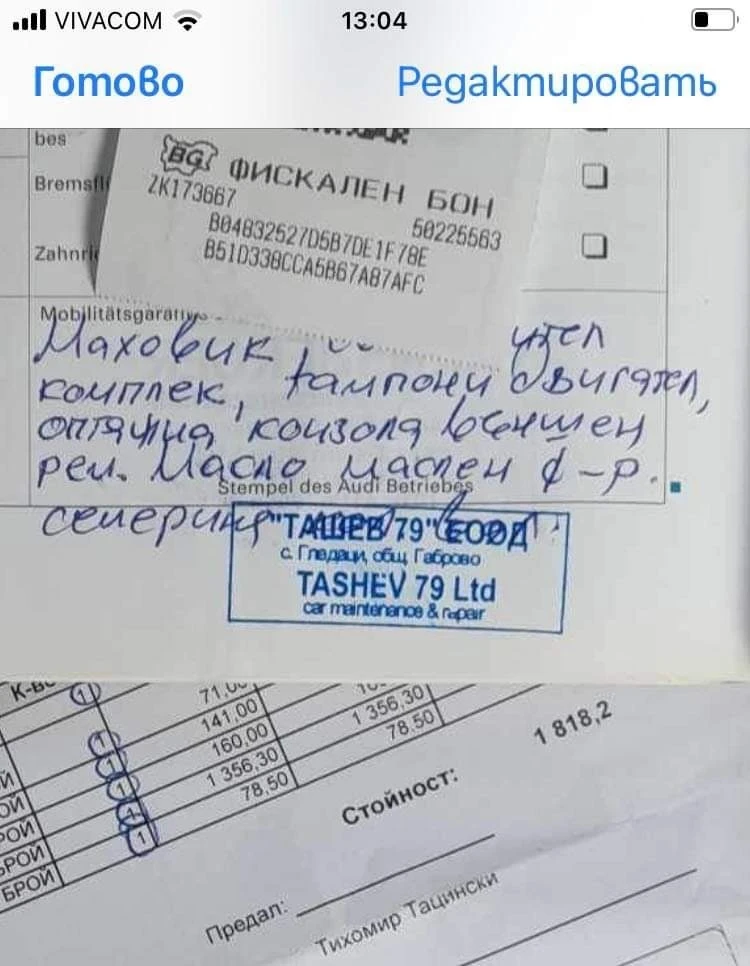 VIVACOM 13:04
Готово Редактировать
bes
Bremsfl
BG ФИСКАЛЕН БОН
ZK173667 50225563
B04832527D5B7DE1F78E
B51D338CCA5B67A87AFC
Zahnri
Mobilitätsgarantie
Маховик
комплек, тампони двигател,
оптяжна конзола външен
рем. Масло маслен ф-р.
Stempel des Audi Betriebes
"ТАШЕВ 79" ЕООД
с. Гледаци, общ. Габрово
TASHEV 79 Ltd
car maintenance & repair
К-во 71,00
141,00
160,00 1 356,30
1 356,30 78,50
78,50
1
1
1
1
1
1
БРОЙ
БРОЙ
Стойност: 1 818,2
Предал:
Тихомир Тацински